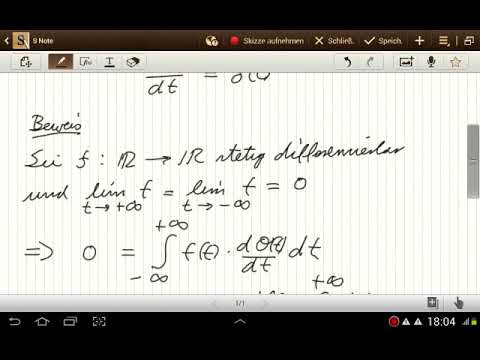 S Note
Skizze aufnehmen
Schließ.
Speich.
dt =
Beweis
Sei f : ℝ → ℝ stetig differenzierbar
und lim f = lim f = 0
t → +∞ t → -∞
⇒ 0 = ∫ f(t) · dΘ(t)/dt dt
+∞
-∞
+∞
1/1
18:04